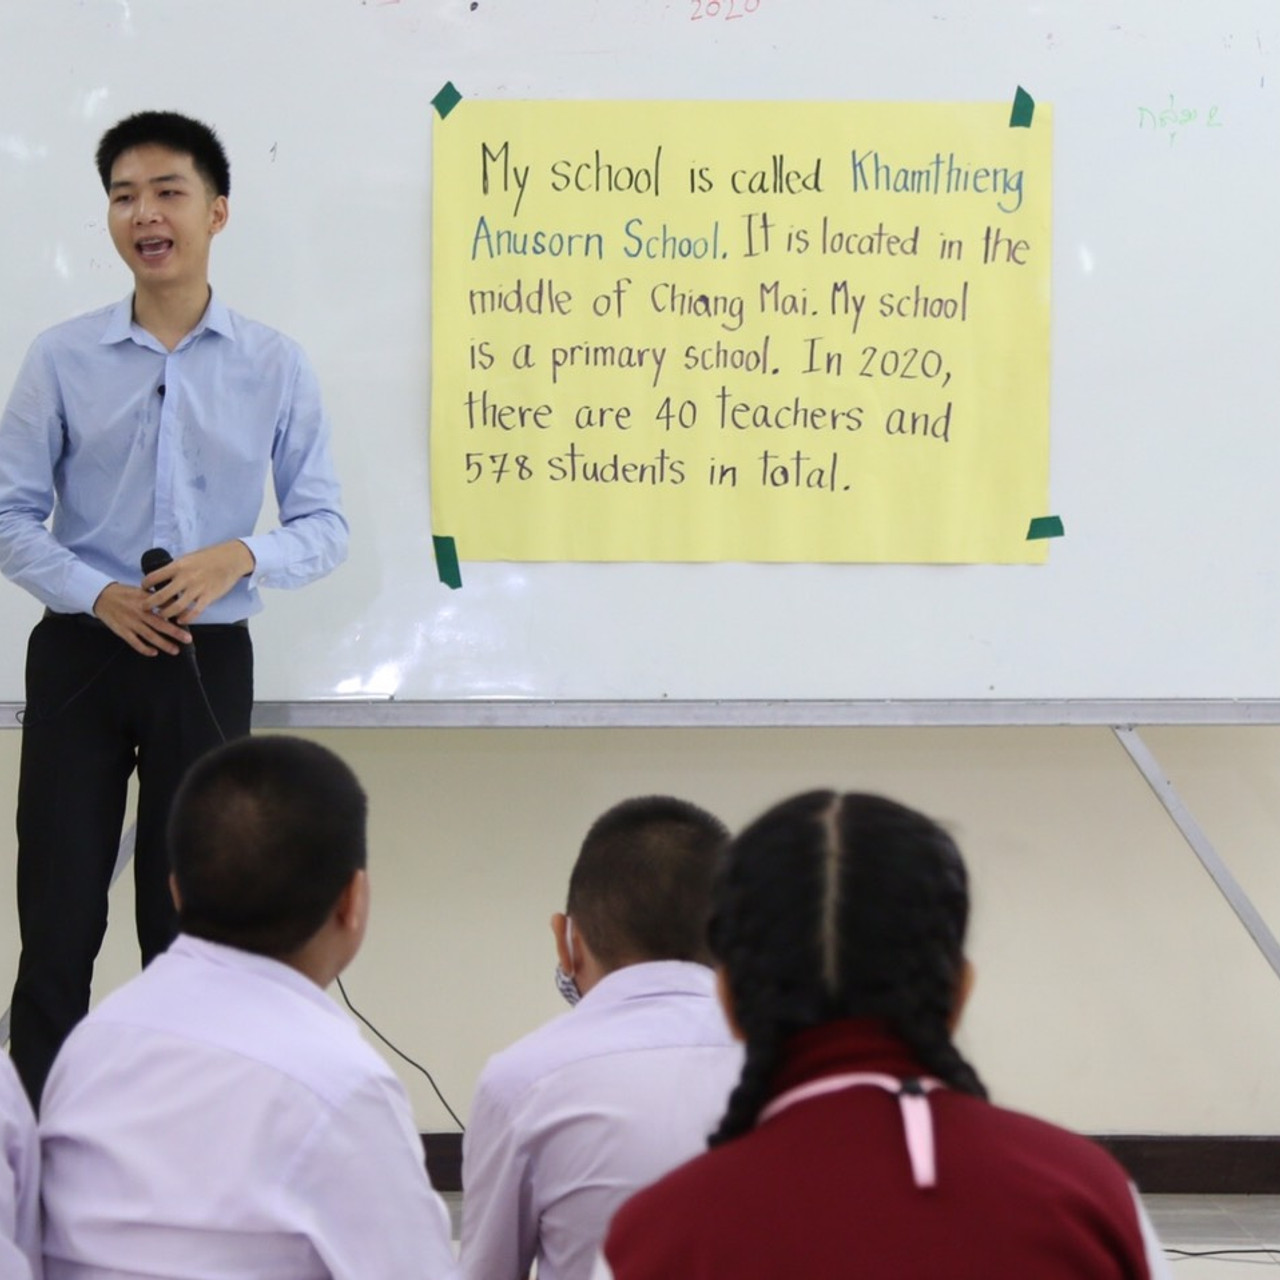 2020
My school is called Khamthieng
Anusorn School. It is located in the
middle of Chiang Mai. My school
is a primary school. In 2020,
there are 40 teachers and
578 students in total.